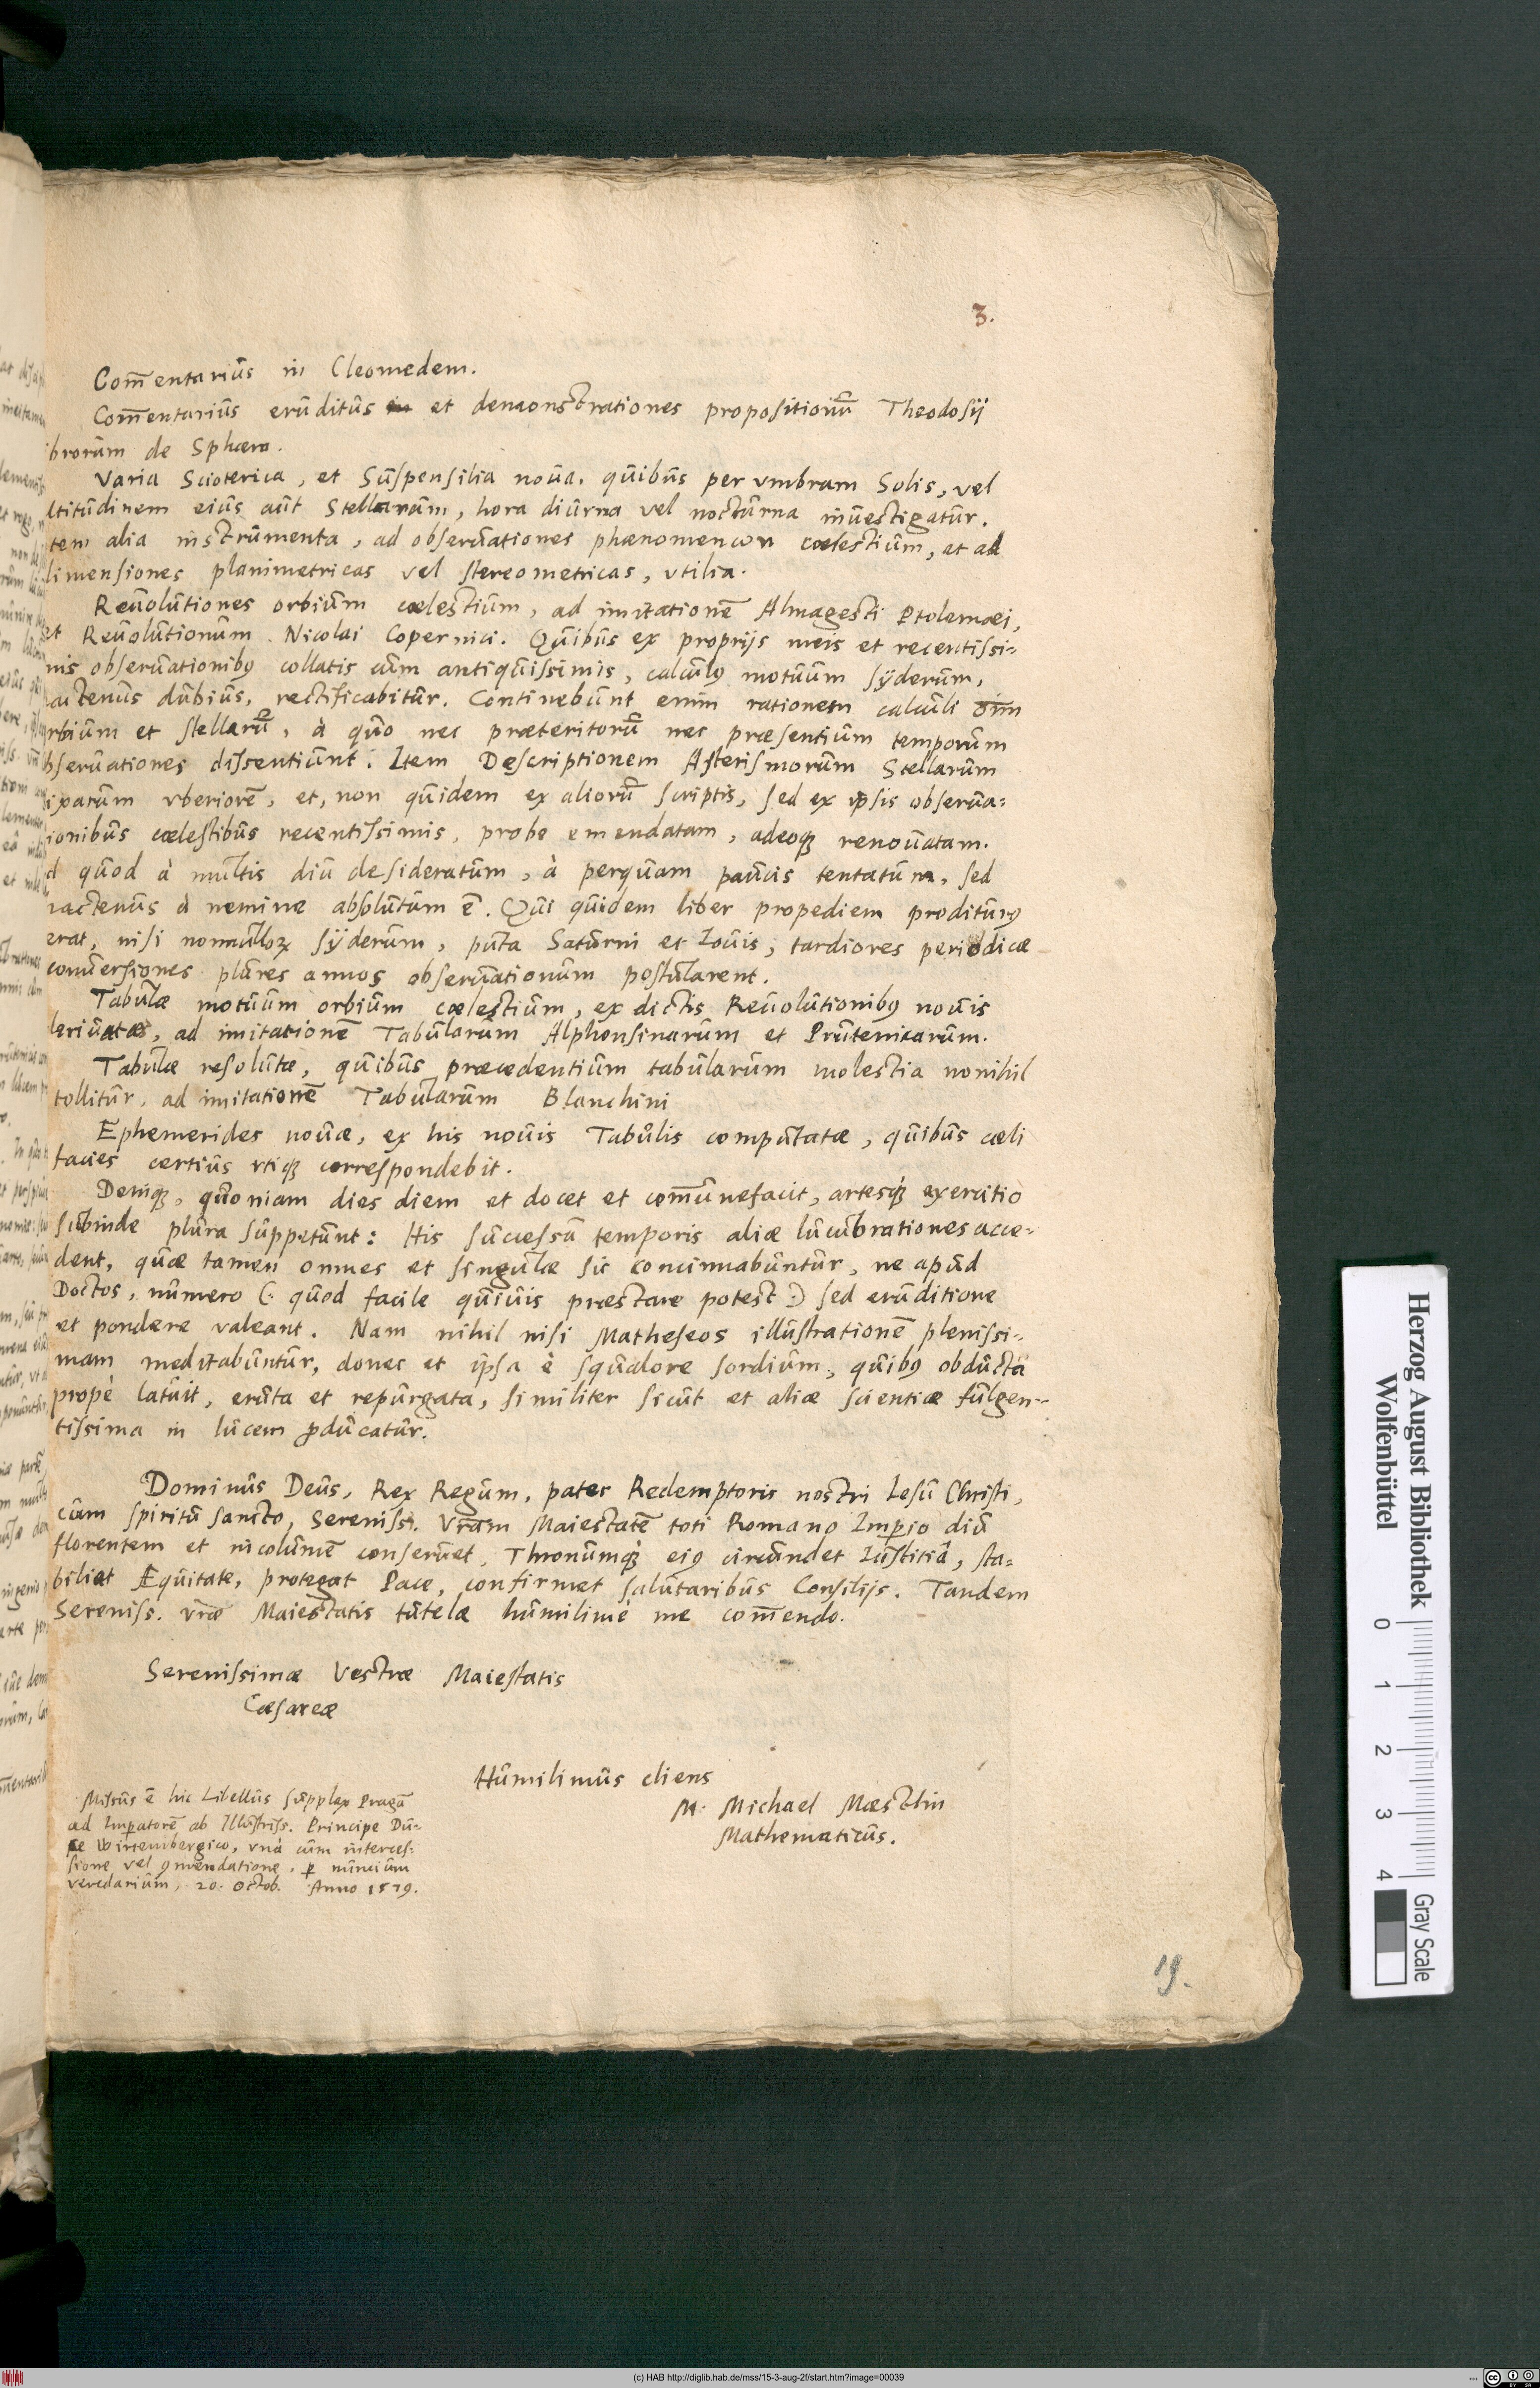 3.
Com̄entarius in Cleomedem.
Com̄entarius eruditus in et demonstrationes propositionū Theodosij
brorum de Sphæra.
Varia Scioterica, et Suspensilia noua. quibus per vmbram Solis, vel
ltitudinem eius aut Stellarum, hora diurna vel nocturna inuestigatur.
tem alia instrumenta, ad obseruationes phænomenωn cœlestium, et ad
limensiones planimetricas vel stereometricas, vtilia.
Reuolutiones orbium cœlestium, ad imitationē Almagesti Ptolemæi,
et Reuolutionum Nicolai Copernici. Quibus ex proprijs meis et recentissi=
mis obseruationibꝫ collatis cum antiquissimis, calculꝰ motuum syderum,
actenus dubius, rectificabitur. Continebunt enim rationem calculi om̄
rbium et stellarū, à quo nec præteritorū nec præsentium temporum
bseruationes dissentiunt. Item Descriptionem Asterismorum Stellarum
ixarum vberiorē, et, non quidem ex aliorū scriptis, sed ex ipsis obserua=
ionibus cœlestibus recentissimis, probe emendatam, adeoqꝫ renouatam.
d quod à multis diu desideratum, à perquam paucis tentatum, sed
actenus à nemine absolutum ē. Qui quidem liber propediem proditurꝰ
erat, nisi nonnulloꝝ syderum, puta Saturni et Iouis, tardiores periodicæ
conuersiones plures annos obseruationum postularent.
Tabulæ motuum orbium cœlestium, ex dictis Reuolutionibꝫ nouis
deriuatæ, ad imitationē Tabularum Alphonsinarum et Prutenicarum.
Tabulæ resolutæ, quibus præcedentium tabularum molestia nonihil
tollitur, ad imitationē Tabularum Blanchini
Ephemerides nouæ, ex his nouis Tabulis computatæ, quibus cæli
facies certius vtiqꝫ correspondebit.
Deniqꝫ, quoniam dies diem et docet et com̄unefacit, artesqꝫ exercitio
subinde plura suppetunt: His successu temporis aliæ lucubrationes acce=
dent, quæ tamen omnes et singulæ sic concinnabuntur, ne apud
Doctos, numero (: quod facile quiuis præstare potest :) sed eruditione
et pondere valeant. Nam nihil nisi Matheseos illustrationē plenissi=
mam meditabuntur, donec et ipsa è squalore sordium, quibꝫ obducta
propè latuit, eruta et repurgata, similiter sicut et aliæ scientiæ fulgen=
tissima in lucem ꝓducatur.
Dominus Deus, Rex Regum, pater Redemptoris nostri Iesu Christi,
cum spiritu sancto, Sereniss. Vram Maiestatē toti Romano Imperio diu
florentem et incolumē conseruet, Thronumqꝫ eiꝰ circundet Iustitiâ, sta=
biliat Æquitate, protegat Pace, confirmet salutaribus Consilijs. Tandem
Sereniss. vræ Maiestatis tutelæ humilimè me com̄endo.
Serenissimæ Vestræ Maiestatis
Cæsareæ
Humilimus cliens
M. Michael Mæstlin
Mathematicus.
Missus ē hic Libellus supplex Pragā
ad Imperatorē ab Illustriss. Principe Du=
ce Wirtembergico, vnà cum interces=
sione vel ꝯmendatione, ꝑ nuncium
veredarium, 20. Octob. Anno 1579.
19.
Herzog August Bibliothek
Wolfenbüttel
0 1 2 3 4
Gray Scale
(c) HAB http://diglib.hab.de/mss/15-3-aug-2f/start.htm?image=00039